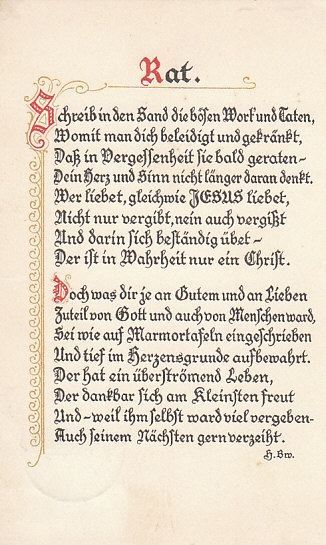 Rat.
Schreib in den Sand die bösen Wort' und Taten,
Womit man dich beleidigt und gekränkt,
Daß in Vergessenheit sie bald geraten –
Dein Herz und Sinn nicht länger daran denkt.
Wer liebet, gleichwie JESUS liebet,
Nicht nur vergibt, nein auch vergißt
Und darin sich beständig übet –
Der ist in Wahrheit nur ein Christ.
Doch was dir je an Gutem und an Lieben
Zuteil von Gott und auch von Menschen ward,
Sei wie auf Marmortafeln eingeschrieben
Und tief im Herzensgrunde aufbewahrt.
Der hat ein überströmend Leben,
Der dankbar sich am Kleinsten freut
Und – weil ihm selbst ward viel vergeben –
Auch seinem Nächsten gern verzeiht.
H. Bw.